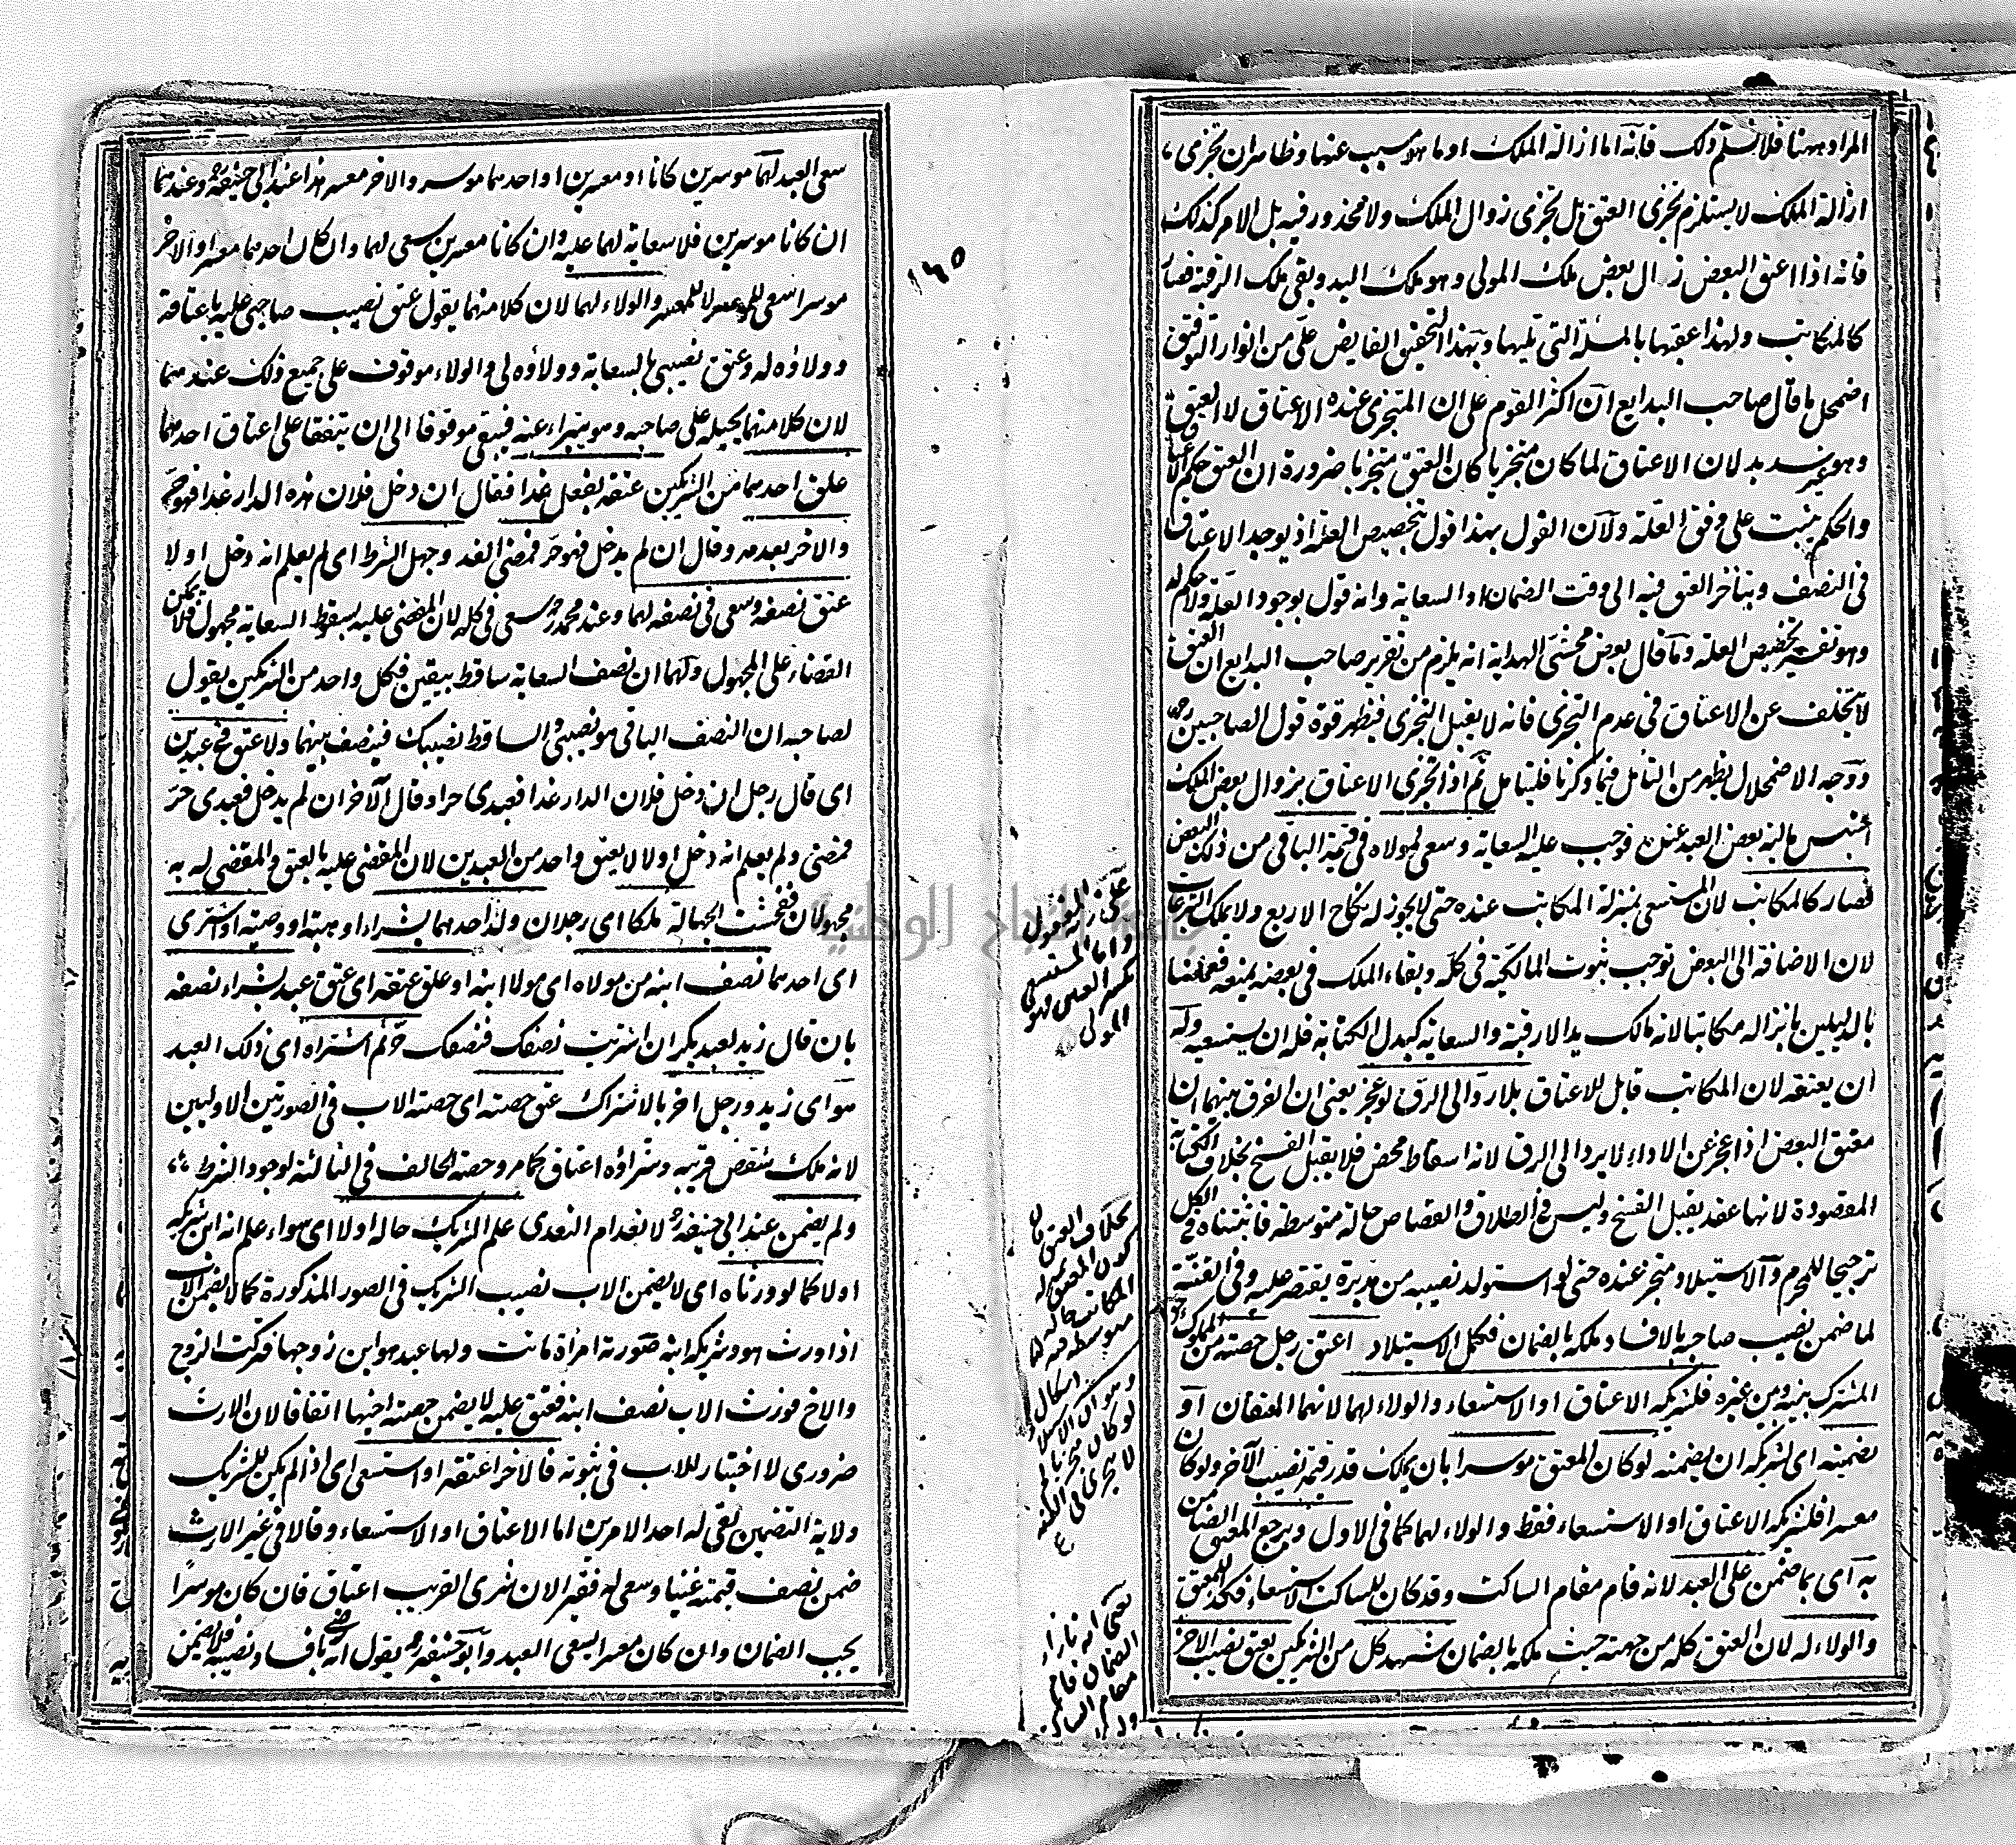 المراد ههنا فلا نسلم ذلك فانه اما ازالة الملك او ما هو مسبب عنها وظاهر ان تجزى
ازالة الملك لا يستلزم تجزى العتق بل تجزى زوال الملك ولا محذور فيه بل الامر كذلك
فانه اذا اعتق البعض زال بعض ملك المولى وهو ملك اليد وبقى ملك الرقبة فصار
كالمكاتب ولهذا عقبها بالمسئلة التى تليها وبهذا التحقيق الفايض علىّ من انوار التوفيق
اضمحل ما قال صاحب البدايع ان اكثر القوم على ان المتجزى عنده الاعتاق لا العتق
وهو غير سديد لان الاعتاق لما كان متجزيا كان العتق متجزيا ضرورة ان العتق حكم الاعتاق
والحكم يثبت على وفق العلة ولان القول بهذا قول بتخصيص العلة اذ يوجد الاعتاق
فى النصف ويتأخر العتق فيه الى وقت الضمان او السعاية وانه قول بوجود العلة ولا حكم له
وهو تفسير تخصيص العلة وما قال بعض محشى الهداية انه يلزم من تقرير صاحب البدايع ان العتق
لا يتخلف عن الاعتاق فى عدم التجزى فانه لا يقبل التجزى فيظهر قوة قول الصاحبين
ووجه الاضمحلال يظهر من التأمل فيما ذكرنا فليتأمل ثم اذا تجزى الاعتاق بزوال بعض الملك
احتبس مالية بعض العبد عنده فوجب عليه السعاية وسعى لمولاه فى قيمة الباقى من ذلك البعض
فصار كالمكاتب لان المستسعى بمنزلة المكاتب عنده حتى لا يجوز له نكاح الاربع ولا يملك التبرعات
لان الاضافة الى البعض توجب ثبوت المالكية فى كله وبقاء الملك فى بعضه يمنعه فعملنا
بالدليلين بانزاله مكاتبا لانه مالك يدا لا رقبة والسعاية كبدل الكتابة فله ان يستسعيه وله
ان يعتقه لان المكاتب قابل للاعتاق بلا رد الى الرق لو عجز يعنى ان الفرق بينهما ان
معتق البعض اذا عجز عن الاداء لا يرد الى الرق لانه اسقاط محض فلا يقبل الفسخ بخلاف الكتابة
المقصودة لانها عقد يقبل الفسخ وليس فى الطلاق والقصاص حالة متوسطة فاثبتناه فى الكل
ترجيحا للمحرم والاستيلاد متجز عنده حتى لو استولد نصيبه من مدبرة يقتصر عليه وفى القنة
لما ضمن نصيب صاحبه بالافساد ملكه بالضمان فكمل الاستيلاد اعتق رجل حصته من المملوك
المشترك بينه وبين غيره فلشريكه الاعتاق او الاستسعاء والولاء لهما لانهما المعتقان او
تضمينه اى لشريكه ان يضمنه لو كان المعتق موسرا بان يملك قدر قيمة نصيب الآخر ولو كان
معسرا فلشريكه الاعتاق او الاستسعاء فقط والولاء لهما كما فى الاول ويرجع المعتق الضامن
به اى بما ضمن على العبد لانه قام مقام الساكت وقد كان للساكت الاستسعاء فكذا للمعتق
والولاء له لان العتق كله من جهته حيث ملكه بالضمان شهد كل من الشريكين بعتق نصيب الآخر
على انه مفعول
واما المستسعى
بكسر العين فهو
المولى
بخلاف العتق فان
كون المعتق بمنزلة
المكاتب حالة
متوسطة
اشكال
وهو ان الاستيلاد
لو كان متجزيا
لا يجزى فى القنة
الضمان قام
مقام
١٤٥
سعى العبد لهما موسرين كانا او معسرين او احدهما موسر والاخر معسر هذا عند ابى حنيفة وعندهما
ان كانا موسرين فلا سعاية لهما عليه وان كانا معسرين سعى لهما وان كان احدهما معسرا والاخر
موسرا سعى للموسر لا للمعسر والولاء لهما لان كلا منهما يقول عتق نصيب صاحبى عليه باعتاقه
وولاؤه له وعتق نصيبى بالسعاية وولاؤه لى والولاء موقوف على جميع ذلك عندهما
لان كلا منهما يحيله على صاحبه وهو يتبراء عنه فيبقى موقوفا الى ان يتفقا على اعتاق احدهما
علق احدهما من الشريكين عتقه بفعل غدا فقال ان دخل فلان هذه الدار غدا فهو حر
والاخر بعدمه وقال ان لم يدخل فهو حر فمضى الغد وجهل الشرط اى لم يعلم انه دخل او لا
عتق نصفه وسعى فى نصفه لهما وعند محمد سعى فى كله لان المقضى عليه بسقوط السعاية مجهول فلا يمكن
القضاء على المجهول ولهما ان نصف السعاية ساقط بيقين فكل واحد من الشريكين يقول
لصاحبه ان النصف الباقى هو نصيبى والساقط نصيبك فينصف بينهما ولا عتق فى عبدين
اى قال رجل ان دخل فلان الدار غدا فعبدى حر وقال الآخر ان لم يدخل فعبدى حر
فمضى ولم يعلم انه دخل او لا لا يعتق واحد من العبدين لان المقضى عليه بالعتق والمقضى له به
مجهولان ففحشت الجهالة ملكا اى رجلان ولد احدهما بشراء او هبة او وصية او اشترى
اى احدهما نصف ابنه من مولاه اى مولا ابنه او علق عتقه اى عتق عبد بشراء نصفه
بان قال زيد لعبد بكر ان اشتريت نصفك فنصفك حر ثم اشتراه اى ذلك العبد
هو اى زيد ورجل اخر بالاشتراك عتق حصته اى حصة الاب فى الصورتين الاوليين
لانه ملك شقص قريبه وشراؤه اعتاق كما مر وحصة الحالف فى الثالثة لوجود الشرط
ولم يضمن عند ابى حنيفة لانعدام التعدى علم الشريك حاله او لا اى سواء علم انه ابن شريكه
او لا كما لو ورثاه اى لا يضمن الاب نصيب الشريك فى الصور المذكورة كما لا يضمن الاب
اذا ورث هو وشريكه ابنه صورته امراة ماتت ولها عبد هو ابن زوجها فتركت الزوج
والاخ فورث الاب نصف ابنه فعتق عليه لا يضمن حصة اخيها اتفاقا لان الارث
ضرورى لا اختيار للاب فى ثبوته فالاخر اعتقه او استسعى اى اذا لم يكن للشريك
ولاية التضمين بقى له احد الامرين اما الاعتاق او الاستسعاء وقالا فى غير الارث
ضمن نصف قيمته غنيا وسعى له فقيرا لان شرى القريب اعتاق فان كان موسرا
يجب الضمان وان كان معسرا يسعى العبد وابو حنيفة يقول انه رضى بافساد نصيبه فلا يضمن